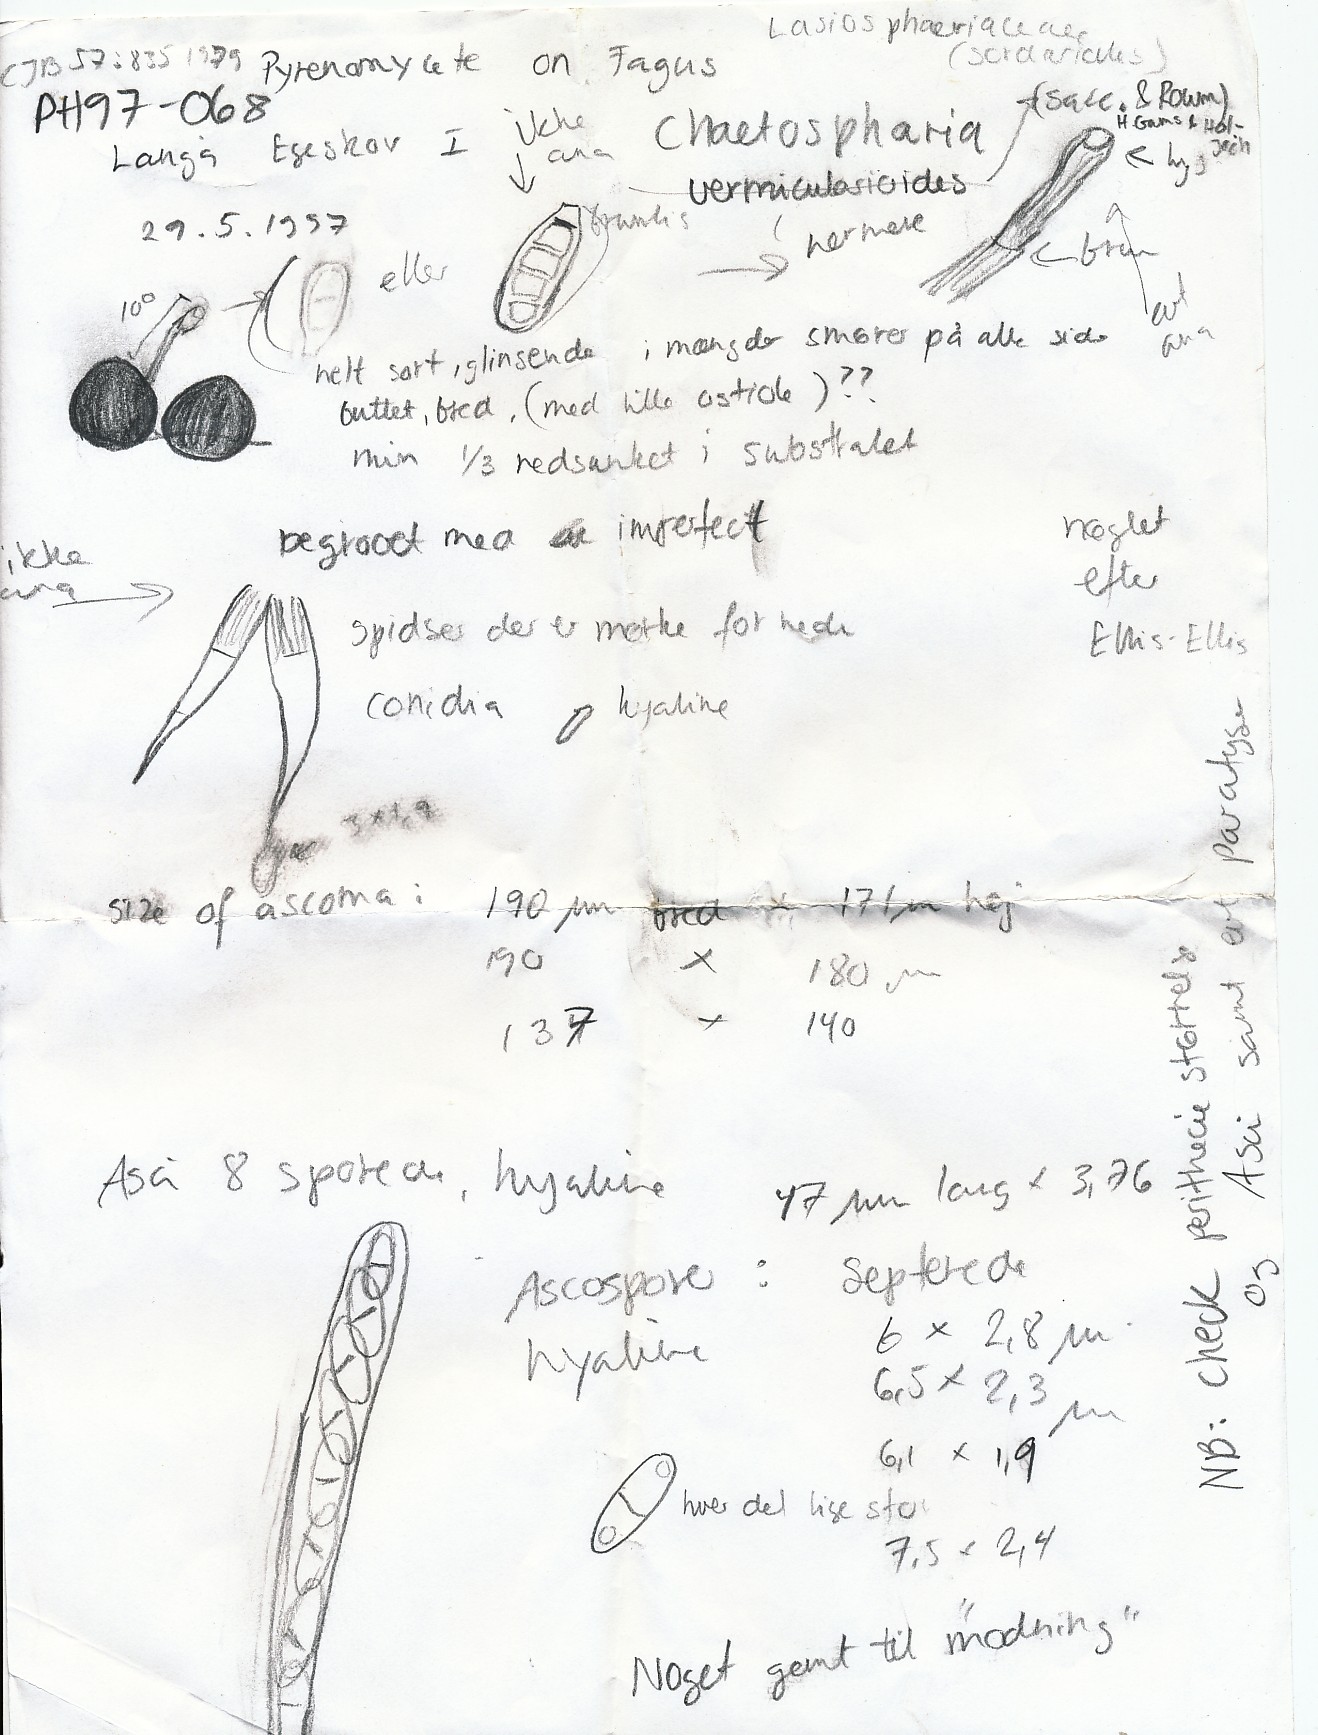 Lasiosphaeriaceae
(Sordariales)
CJB 57:835 1979 Pyrenomycete on Fagus
PH97-068
Langå Egeskov I
ikke
ana
Chaetospharia
vermicularioides
(Sacc. & Roum)
W. Gams & Hol-
Jech
29.5.1997
brunlis
nærmere
brun
evt
ana
10°
eller
helt sort, glinsende i mængder smører på alle side
buttet, bred, (med lille ostiole)??
min 1/3 nedsunket i substratet
begroet med imperfect
ikke
ana
nøglet
efter
Ellis-Ellis
spidser der er mørke for nede
conidia hyaline
3 x 1,9
size of ascoma: 190 µm bred x 171 µm høj
190 x 180 µm
137 x 140
Asci 8 sporede, hyaline 47 µm lang x 3,76
Ascospore: septerede
hyaline 6 x 2,8 µm
6,5 x 2,3 µm
6,1 x 1,9
hver del lige stor
7,5 x 2,4
Noget gemt til "modning"
NB: check perithecie størrelse
og Asci samt evt parafyse